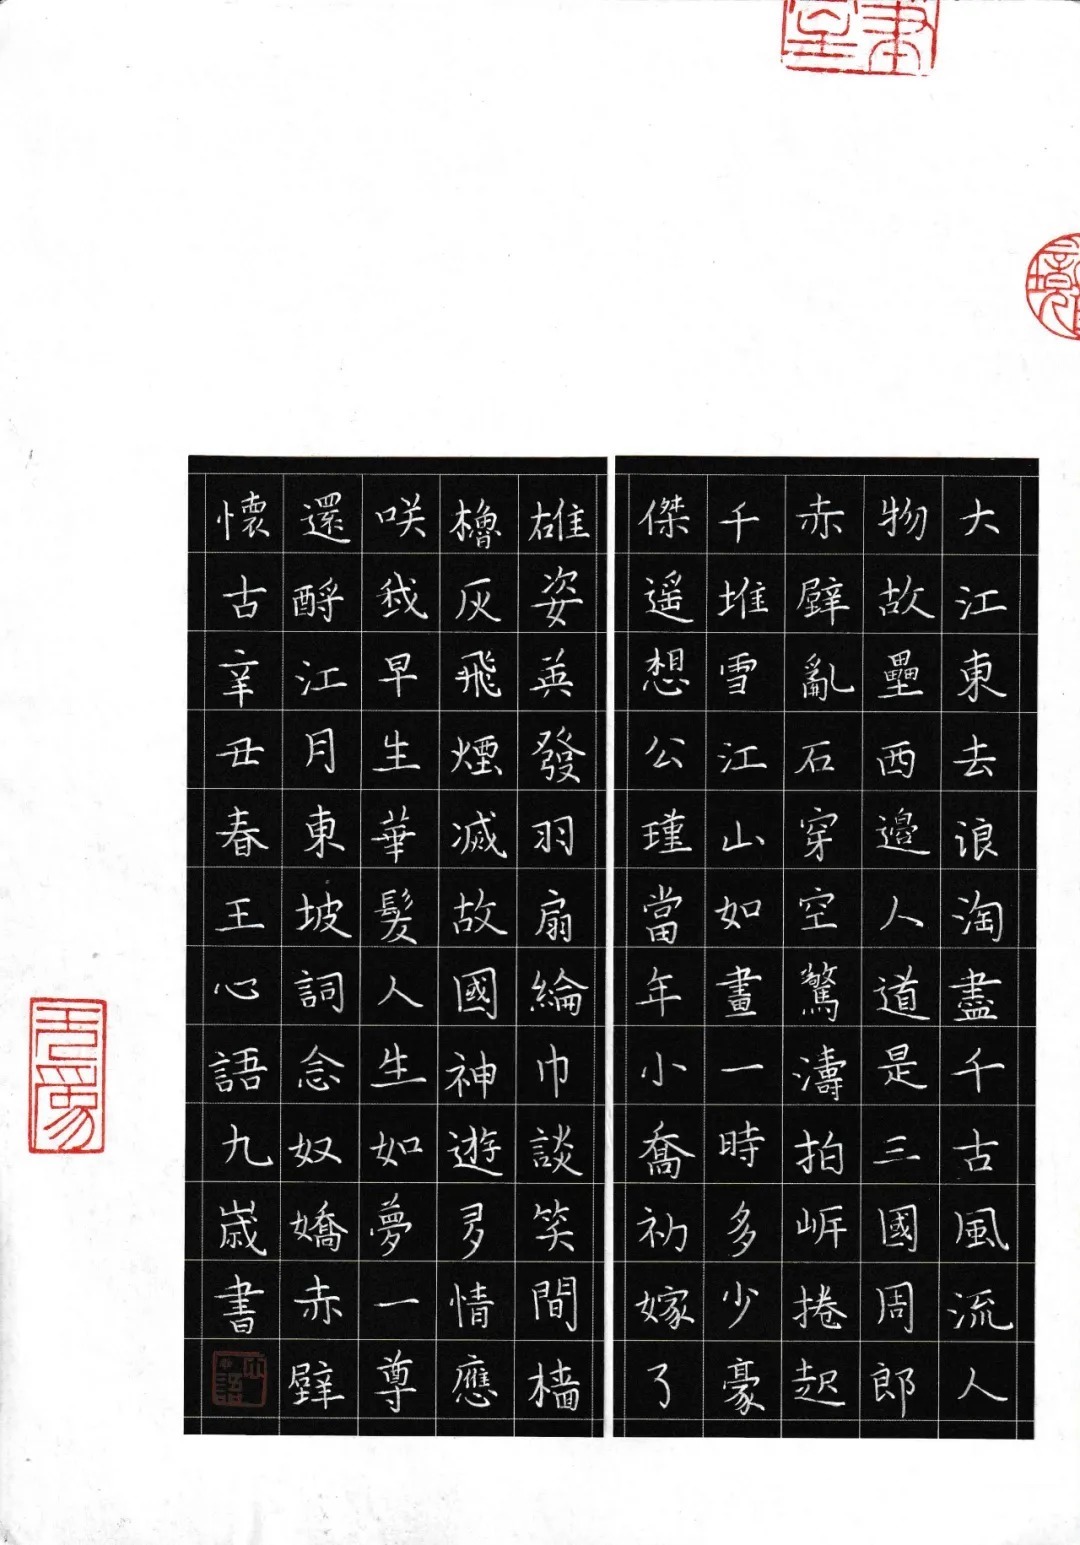 大江東去浪淘盡千古風流人
物故壘西邊人道是三國周郎
赤壁亂石穿空驚濤拍岸捲起
千堆雪江山如畫一時多少豪
傑遥想公瑾當年小喬初嫁了
雄姿英發羽扇綸巾談笑間檣
櫓灰飛煙滅故國神遊多情應
咲我早生華髮人生如夢一尊
還酹江月東坡詞念奴嬌赤壁
懷古辛丑春王心語九歲書